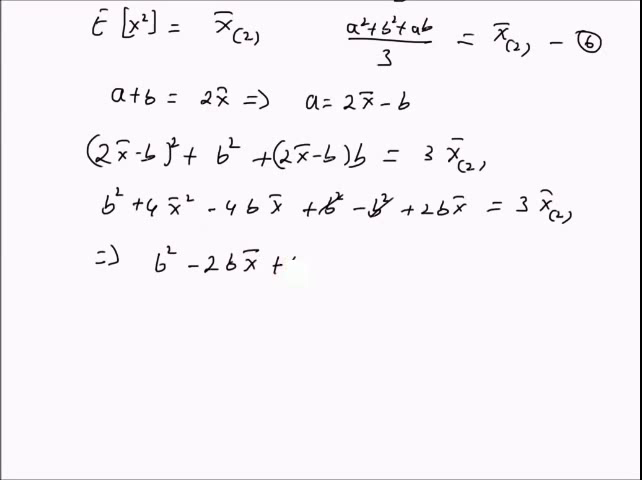 E [x²] = x̄₍₂₎   (a²+b²+ab)/3 = x̄₍₂₎ – ⑥
a+b = 2x̄ => a = 2x̄ – b
(2x̄–b)² + b² + (2x̄–b)b = 3 x̄₍₂₎
b² + 4x̄² – 4bx̄ + b² – b² + 2bx̄ = 3 x̄₍₂₎
=> b² – 2bx̄ +